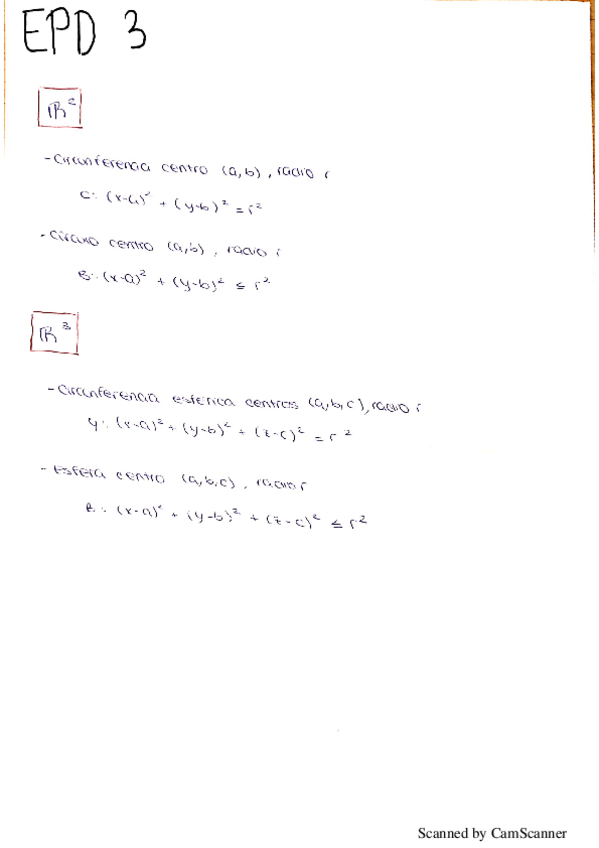 EPD 3
ℝ²
- Circunferencia centro (a,b), radio r
C: (x-a)² + (y-b)² = r²
- Círculo centro (a,b), radio r
B: (x-a)² + (y-b)² ≤ r²
ℝ³
- Circunferencia esférica centros (a,b,c), radio r
y: (x-a)² + (y-b)² + (z-c)² = r²
- Esfera centro (a,b,c), radio r
B: (x-a)² + (y-b)² + (z-c)² ≤ r²
Scanned by CamScanner